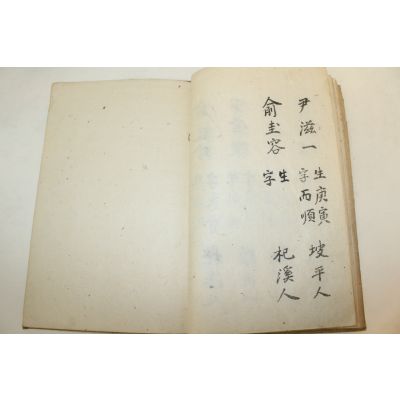 尹滋一 生庚寅 坡平人
字而順
俞圭容 生 杞溪人
字